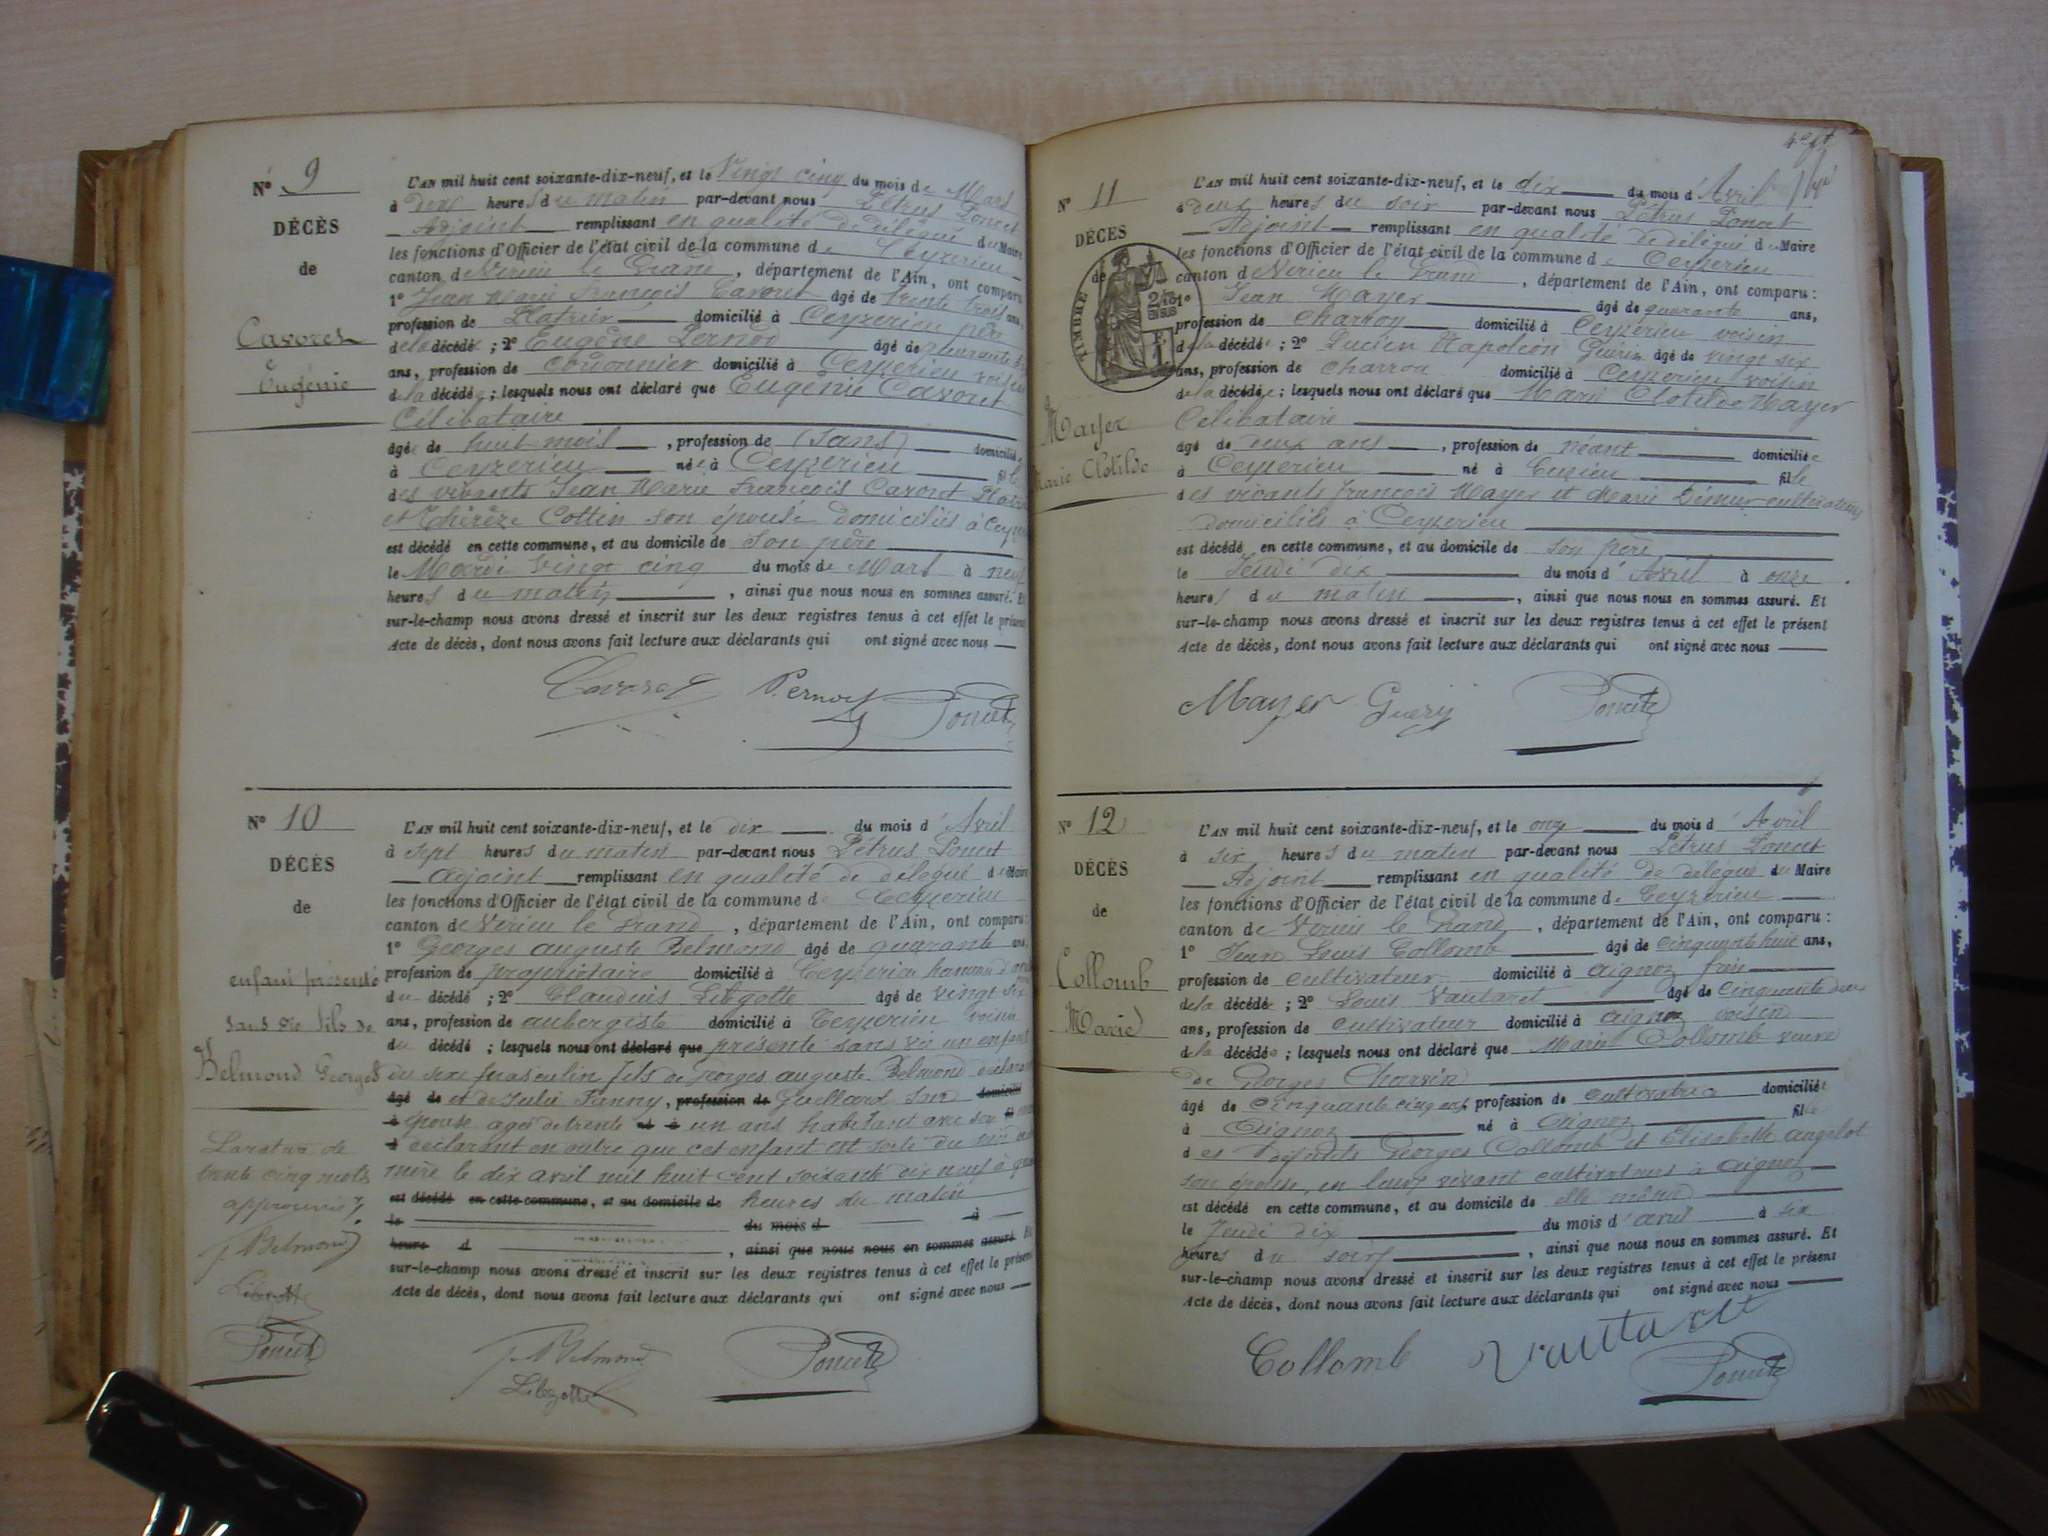 N° 9
DÉCÈS
de
Cavoret
Eugénie
L'AN mil huit cent soixante-dix-neuf, et le Vingt cinq du mois de Mars
à deux heures du matin par-devant nous Pétrus Poncet
Adjoint remplissant en qualité de délégué du Maire
les fonctions d'Officier de l'état civil de la commune de Ceyzerieu
canton de Virieu le Grand, département de l'Ain, ont comparu
1° Jean Marie François Cavoret âgé de trente trois ans,
profession de Platrier domicilié à Ceyzerieu père
de la décédée ; 2° Eugène Pernod âgé de quarante
ans, profession de cordonnier domicilié à Ceyzerieu voisin
de la décédée ; lesquels nous ont déclaré que Eugénie Cavoret
Célibataire
âgée de huit mois, profession de (sans) domiciliée
à Ceyzerieu née à Ceyzerieu fille
des vivants Jean Marie François Cavoret Platrier
et Thérèze Cottin son épouse domiciliés à
est décédé en cette commune, et au domicile de son père
le Mardi vingt cinq du mois de Mars à neuf
heures du matin, ainsi que nous nous en sommes assuré. Et
sur-le-champ nous avons dressé et inscrit sur les deux registres tenus à cet effet le présent
Acte de décès, dont nous avons fait lecture aux déclarants qui ont signé avec nous
Cavoret Pernod Poncet
N° 10
DÉCÈS
de
enfant présenté
sans vie fils de
Belmond Georges
L'AN mil huit cent soixante-dix-neuf, et le dix du mois d'Avril
à sept heures du matin par-devant nous Pétrus Poncet
adjoint remplissant en qualité de délégué du Maire
les fonctions d'Officier de l'état civil de la commune de Ceyzerieu
canton de Virieu le Grand, département de l'Ain, ont comparu :
1° Georges auguste Belmond âgé de quarante ans,
profession de propriétaire domicilié à Ceyzerieu hameau
du décédé ; 2° Claudius Libgotte âgé de vingt six
ans, profession de aubergiste domicilié à Ceyzerieu voisin
du décédé ; lesquels nous ont déclaré que présenté sans vie un enfant
du sexe masculin fils de Georges auguste Belmond déclarant
âgé de et de Julie Fanny, profession de Guillard son domicilié
à épouse agés de trente né à un ans habitant avec son
d déclarant en outre que cet enfant est sorti du sein de
mère le dix avril mil huit cent soixante dix neuf à
est décédé en cette commune, et au domicile de heures du matin
le du mois d à
heure d, ainsi que nous nous en sommes assuré. Et
sur-le-champ nous avons dressé et inscrit sur les deux registres tenus à cet effet le présent
Acte de décès, dont nous avons fait lecture aux déclarants qui ont signé avec nous
La rature de
trente cinq mots
approuvée
Belmond
Libgotte
Poncet
Belmond
Libgotte
Poncet
N° 11
DÉCÈS
de
TIMBRE
2/10 EN SUS
Mayer
Marie Clotilde
L'AN mil huit cent soixante-dix-neuf, et le dix du mois d'Avril
à deux heures du soir par-devant nous Pétrus Poncet
Adjoint remplissant en qualité de délégué du Maire
les fonctions d'Officier de l'état civil de la commune de Ceyzerieu
canton de Virieu le Grand, département de l'Ain, ont comparu :
1° Jean Mayer âgé de quarante ans,
profession de charron domicilié à Ceyzerieu voisin
de la décédée ; 2° Lucien Napoléon Guérin âgé de vingt six
ans, profession de charron domicilié à Ceyzerieu voisin
de la décédée ; lesquels nous ont déclaré que Marie Clotilde Mayer
Célibataire
âgée de deux ans, profession de néant domiciliée
à Ceyzerieu né à Cuzieu fille
des vivants François Mayer et Marie cultivateurs
domiciliés à Ceyzerieu
est décédé en cette commune, et au domicile de son père
le Jeudi dix du mois d'Avril à onze
heures du matin, ainsi que nous nous en sommes assuré. Et
sur-le-champ nous avons dressé et inscrit sur les deux registres tenus à cet effet le présent
Acte de décès, dont nous avons fait lecture aux déclarants qui ont signé avec nous
Mayer Poncet
N° 12
DÉCÈS
de
Collomb
Marie
L'AN mil huit cent soixante-dix-neuf, et le onze du mois d'Avril
à six heures du matin par-devant nous Pétrus Poncet
Adjoint remplissant en qualité de délégué du Maire
les fonctions d'Officier de l'état civil de la commune de Ceyzerieu
canton de Virieu le Grand, département de l'Ain, ont comparu :
1° Jean Louis Collomb âgé de cinquante huit ans,
profession de cultivateur domicilié à aignoz frère
de la décédée ; 2° Louis Vautaret âgé de cinquante deux
ans, profession de cultivateur domicilié à aignoz voisin
de la décédée ; lesquels nous ont déclaré que Marie Collomb veuve
de Georges Charvin
âgée de cinquante cinq ans, profession de cultivatrice domiciliée
à Aignoz né à Aignoz fille
des défunts Georges Collomb et Elisabeth angelot
son épouse, en leur vivant cultivateurs à aignoz
est décédé en cette commune, et au domicile de elle même
le Jeudi dix du mois d'avril à six
heures du soir, ainsi que nous nous en sommes assuré. Et
sur-le-champ nous avons dressé et inscrit sur les deux registres tenus à cet effet le présent
Acte de décès, dont nous avons fait lecture aux déclarants qui ont signé avec nous
Collomb Vautaret
Poncet